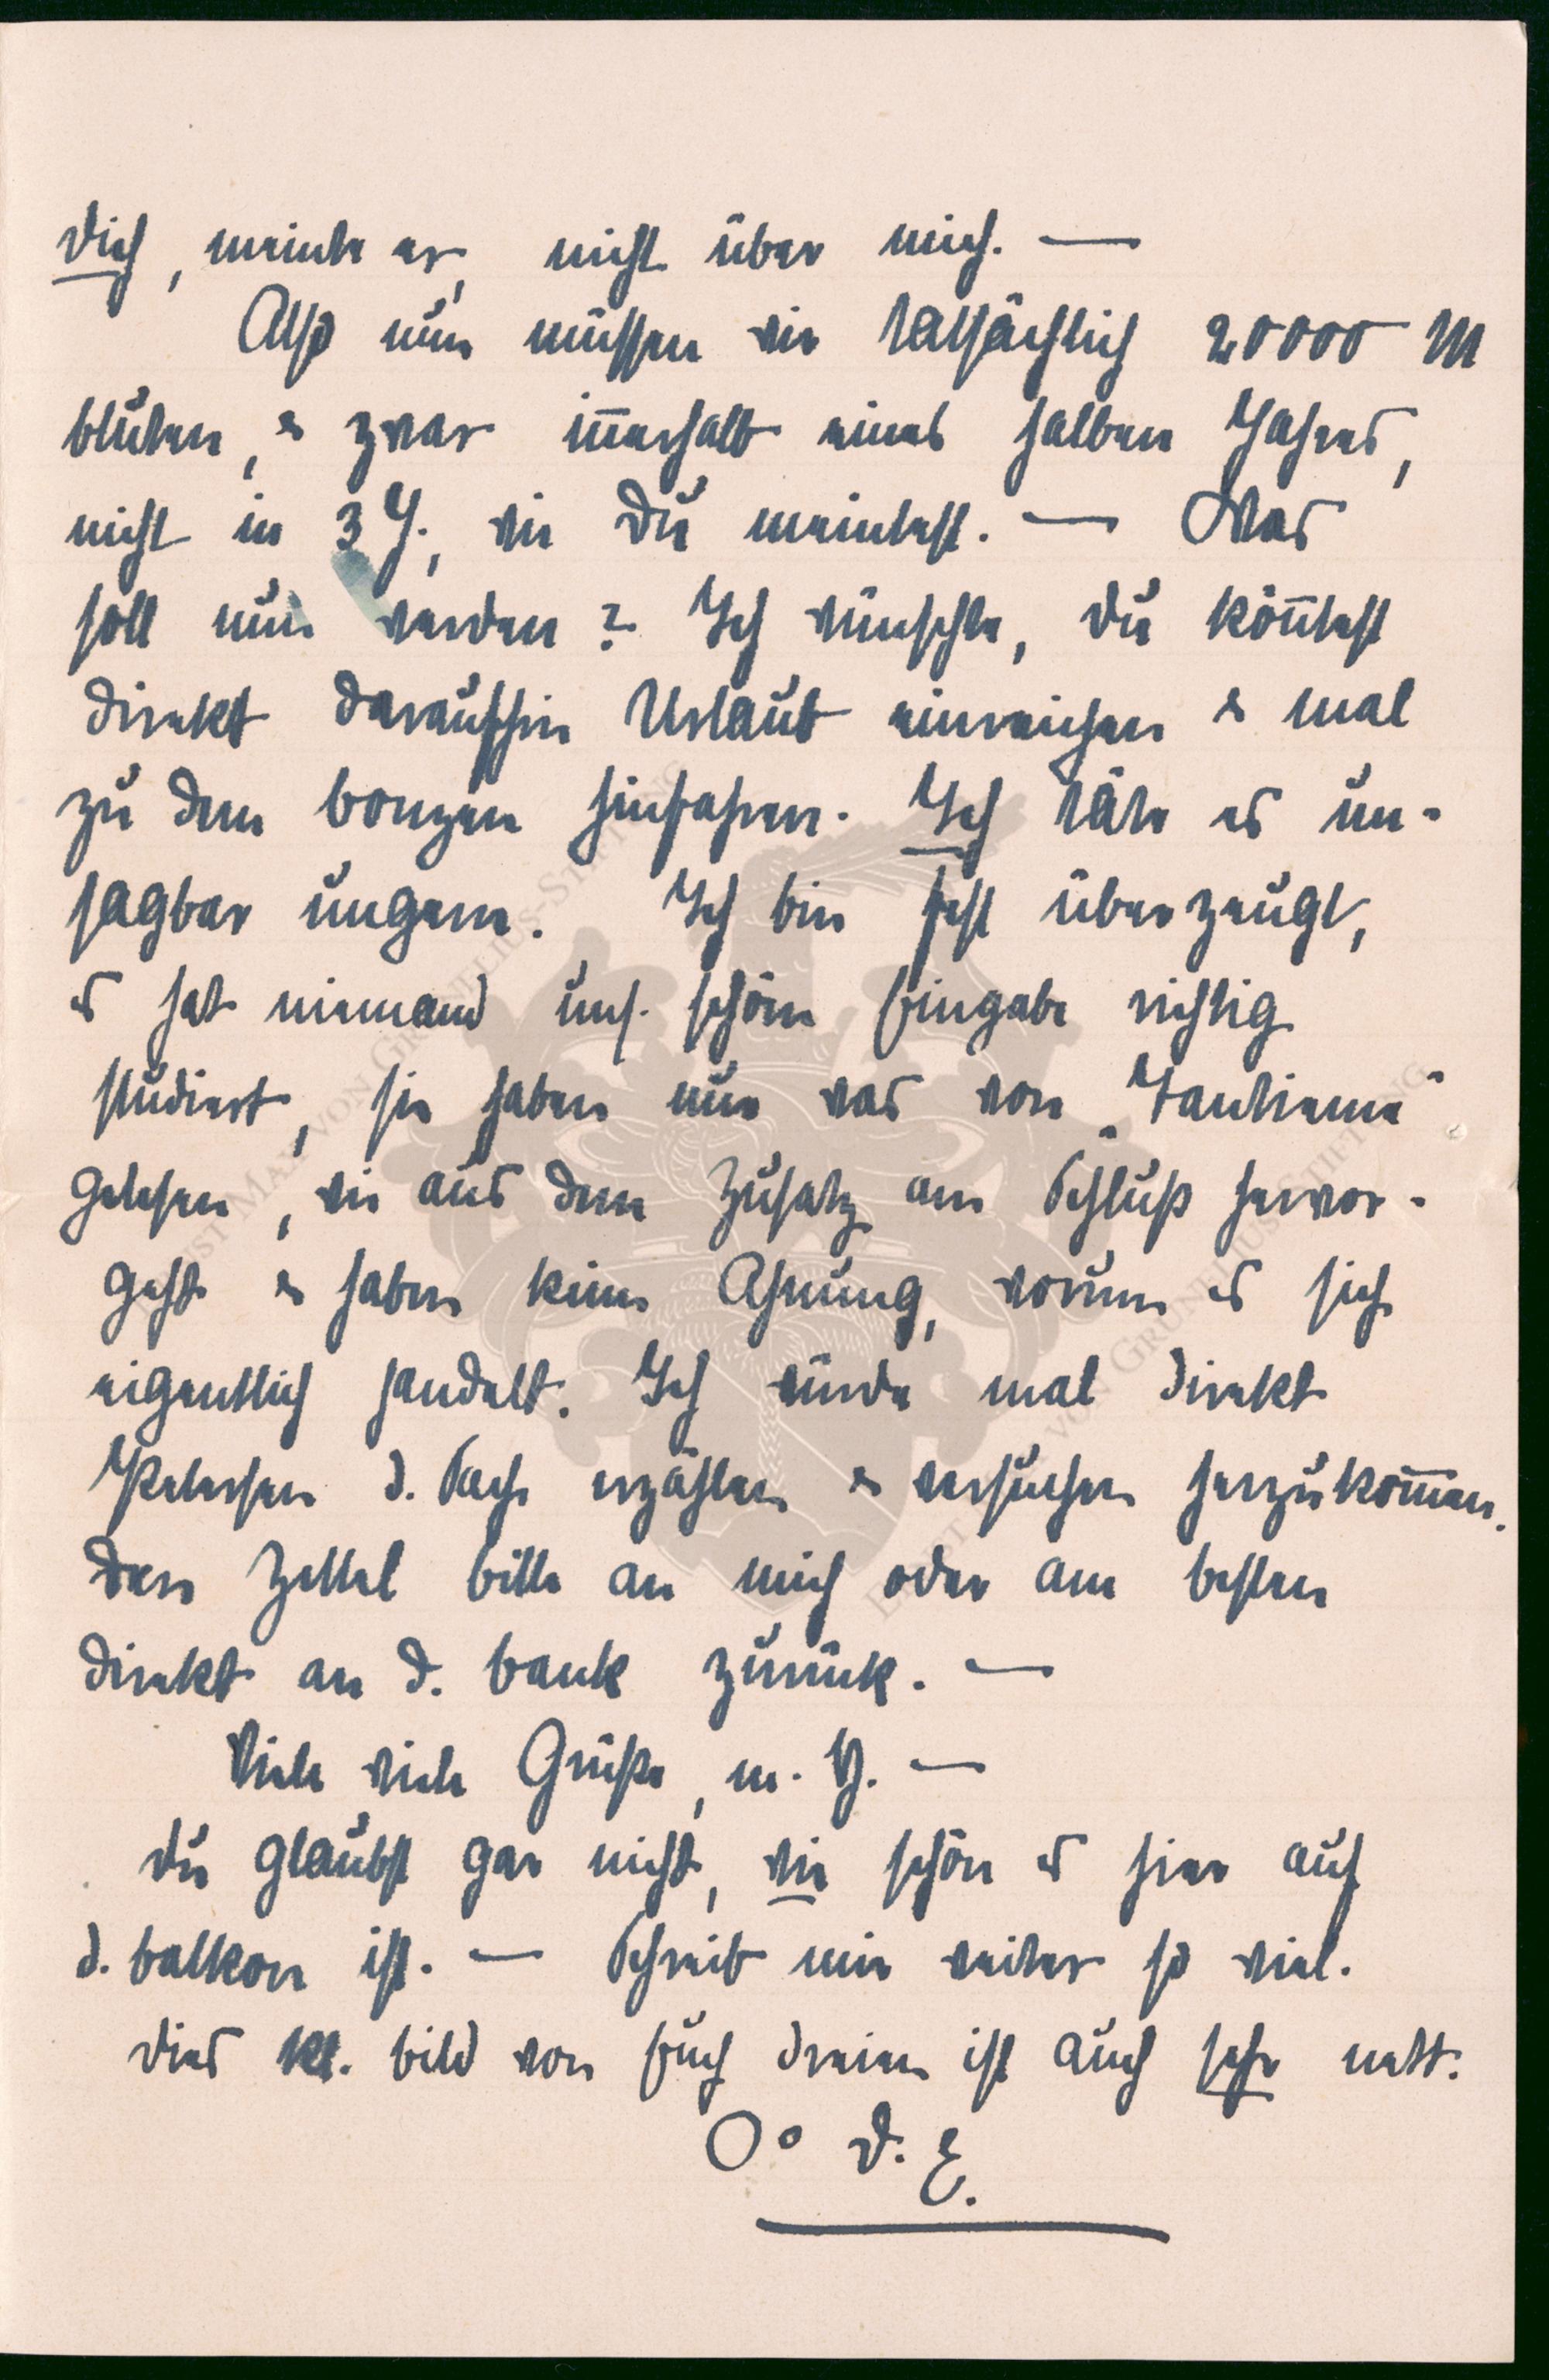 Dich, meinte er, nicht über mich. —
Also nun müssen wir tatsächlich 20000 M
bluten, & zwar in̄erhalb eines halben Jahres,
nicht in 3 J., wie Du meintest. — Was
soll nun werden? Ich wünschte, Du kön̄test
direkt daraufhin Urlaub einreichen & mal
zu den Bonzen hinfahren. Ich täte es un-
sagbar ungern. Ich bin fest überzeugt,
es hat niemand uns. schöne Eingabe richtig
studiert, sie haben nur was von „Tantieme“
gelesen, wie aus dem Zusatz am Schluß hervor-
geht & haben keine Ahnung, worum es sich
eigentlich handelt. Ich würde mal direkt
Petersen d. Sache erzählen & versuchen herzukom̄en.
Den Zettel bitte an mich oder am besten
direkt an d. Bank zurück. —
Viele viele Grüße, m. H. —
Du glaubst gar nicht, wie schön es hier auf
d. Balkon ist. — Schreib mir weiter so viel.
Dies kl. Bild von Euch dreien ist auch sehr nett.
O° D. E.
ERNST MAX VON GRUNELIUS-STIFTUNG
ERNST MAX VON GRUNELIUS-STIFTUNG